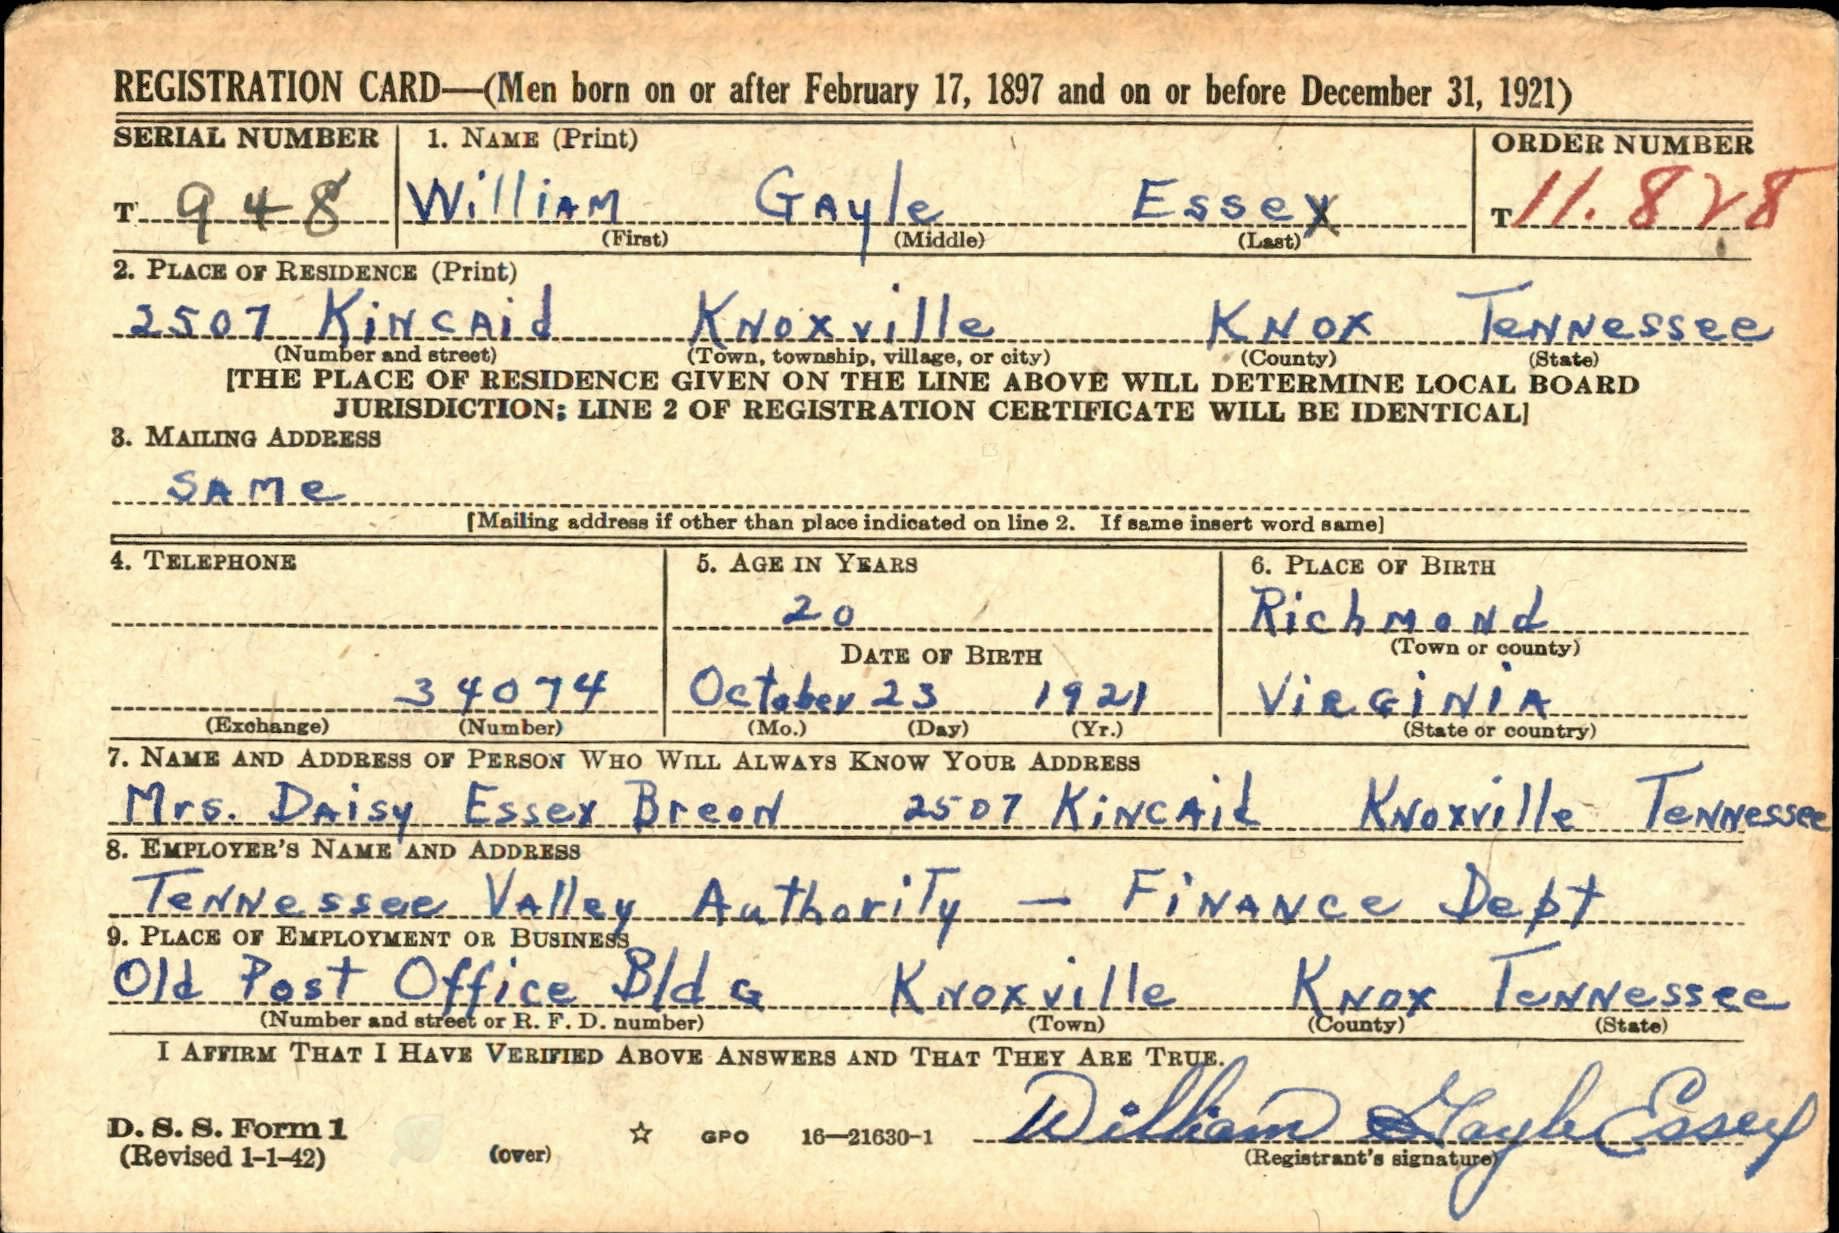 REGISTRATION CARD—(Men born on or after February 17, 1897 and on or before December 31, 1921)
SERIAL NUMBER 1. NAME (Print) ORDER NUMBER
T 948 William Gayle Essex T 11.828
(First) (Middle) (Last)
2. PLACE OF RESIDENCE (Print)
2507 Kincaid Knoxville Knox Tennessee
(Number and street) (Town, township, village, or city) (County) (State)
[THE PLACE OF RESIDENCE GIVEN ON THE LINE ABOVE WILL DETERMINE LOCAL BOARD
JURISDICTION; LINE 2 OF REGISTRATION CERTIFICATE WILL BE IDENTICAL]
3. MAILING ADDRESS
Same
[Mailing address if other than place indicated on line 2. If same insert word same]
4. TELEPHONE 5. AGE IN YEARS 6. PLACE OF BIRTH
20 Richmond
DATE OF BIRTH (Town or county)
34074 October 23 1921 Virginia
(Exchange) (Number) (Mo.) (Day) (Yr.) (State or country)
7. NAME AND ADDRESS OF PERSON WHO WILL ALWAYS KNOW YOUR ADDRESS
Mrs. Daisy Essex Breon 2507 Kincaid Knoxville Tennessee
8. EMPLOYER'S NAME AND ADDRESS
Tennessee Valley Authority — Finance Dept
9. PLACE OF EMPLOYMENT OR BUSINESS
Old Post Office Bldg Knoxville Knox Tennessee
(Number and street or R. F. D. number) (Town) (County) (State)
I AFFIRM THAT I HAVE VERIFIED ABOVE ANSWERS AND THAT THEY ARE TRUE.
D. S. S. Form 1 GPO 16—21630-1 William Gayle Essex
(Revised 1-1-42) (over) (Registrant's signature)